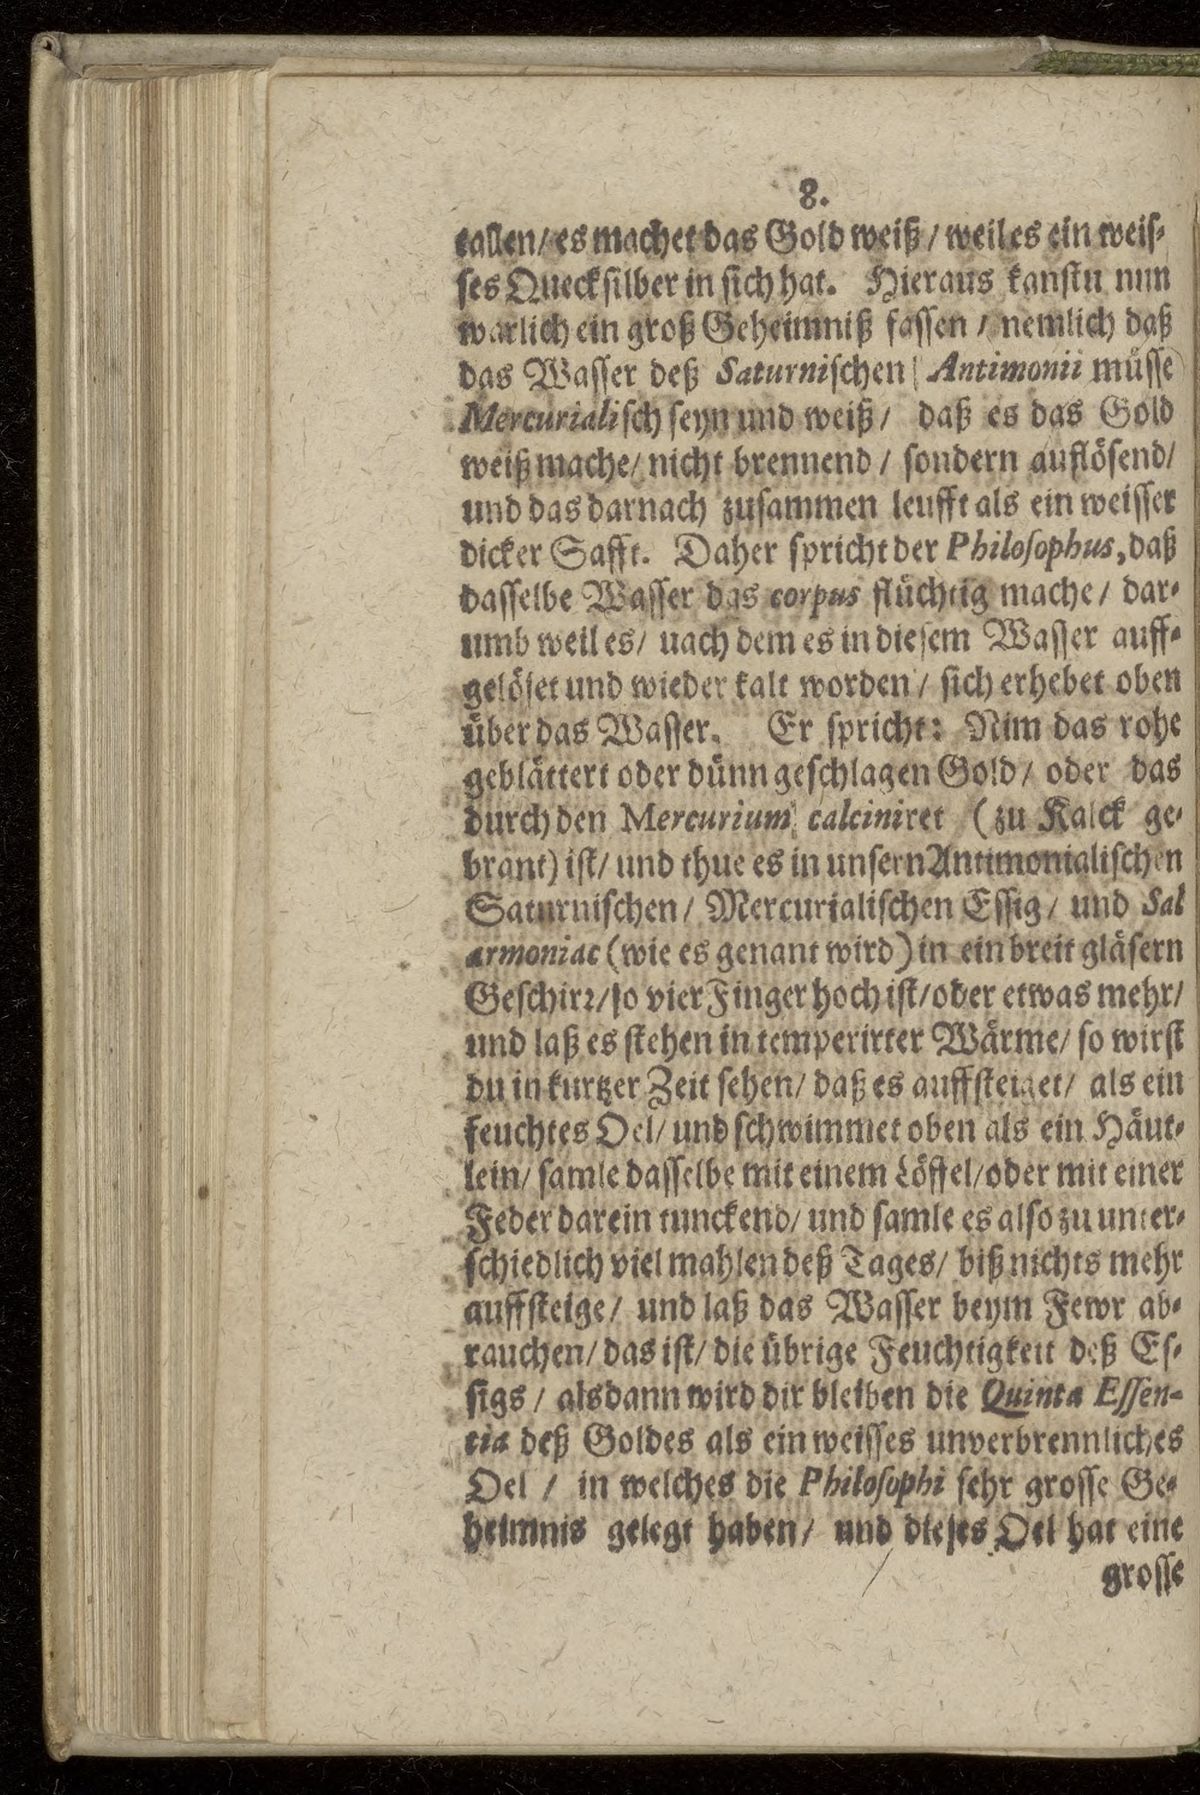 8.
tallen/ es machet das Gold weiß/ weil es ein weiſ-
ſes Queckſilber in ſich hat. Hieraus kanſtu nun
warlich ein groß Geheimniß faſſen / nemlich daß
das Waſſer deß Saturniſchen Antimonii müſſe
Mercurialiſch ſeyn und weiß/ daß es das Gold
weiß mache/ nicht brennend / ſondern auflöſend/
und das darnach zuſammen leufft als ein weiſſer
dicker Safft. Daher ſpricht der Philoſophus, daß
daſſelbe Waſſer das corpus flüchtig mache/ dar-
umb weil es/ uach dem es in dieſem Waſſer auff-
gelöſet und wieder kalt worden / ſich erhebet oben
über das Waſſer. Er ſpricht: Nim das rohe
geblättert oder dünn geſchlagen Gold/ oder das
durch den Mercurium calciniret (zu Kalck ge-
brant) iſt/ und thue es in unſern Antimonialiſchen
Saturniſchen/ Mercurialiſchen Eſſig/ und Sal
armoniac (wie es genant wird) in ein breit gläſern
Geſchirꝛ/ ſo vier Finger hoch iſt/ oder etwas mehr/
und laß es ſtehen in temperirter Wärme/ ſo wirſt
du in kurtzer Zeit ſehen/ daß es auffſteiget/ als ein
feuchtes Oel/ und ſchwimmet oben als ein Häut-
lein/ ſamle daſſelbe mit einem Löffel/ oder mit einer
Feder darein tunckend/ und ſamle es alſo zu unter-
ſchiedlich viel mahlen deß Tages/ biß nichts mehr
auffſteige/ und laß das Waſſer beym Fewr ab-
rauchen/ das iſt/ die übrige Feuchtigkeit deß Eſ-
ſigs / alsdann wird dir bleiben die Quinta Eſſen-
tia deß Goldes als ein weiſſes unverbrennliches
Oel / in welches die Philoſophi ſehr groſſe Ge-
heimnis gelegt haben/ und dieſes Oel hat eine
groſſe